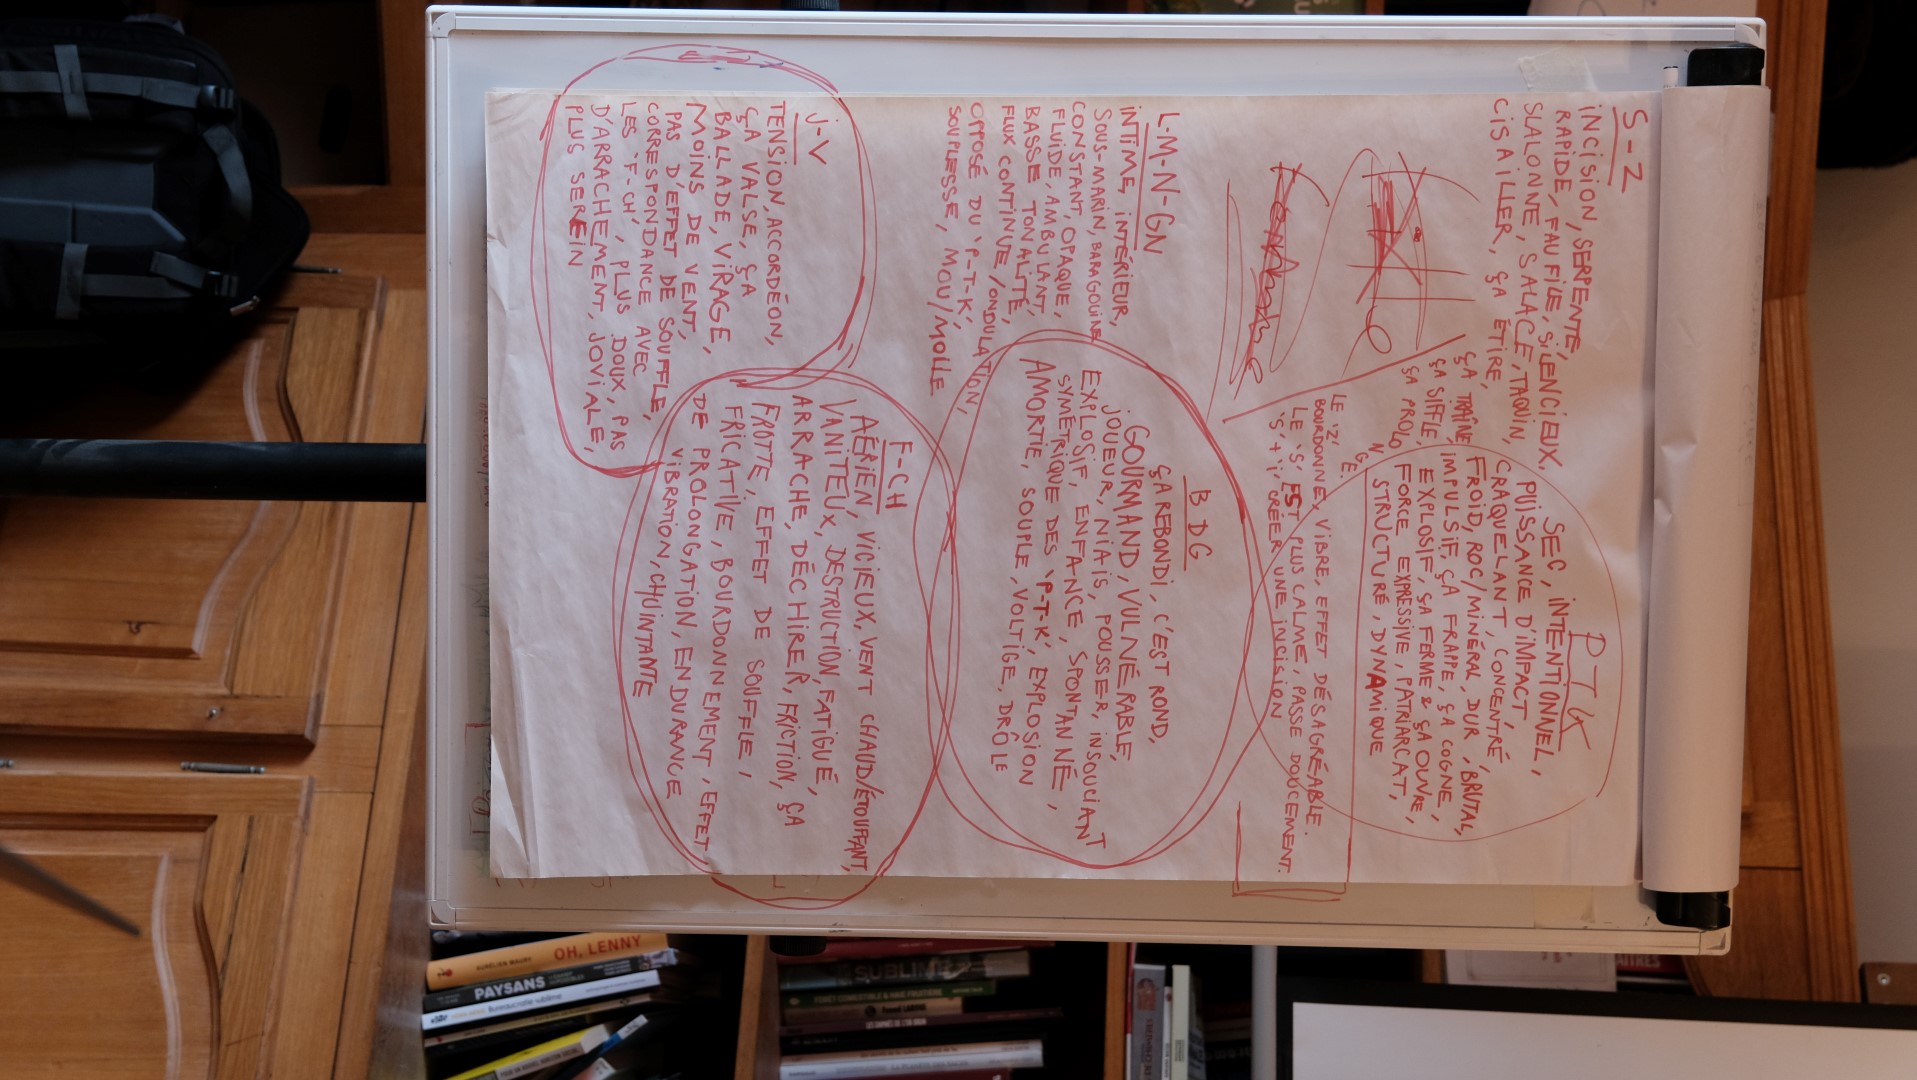 S-Z
INCISION, SERPENTE,
RAPIDE, FAUFILE, SILENCIEUX.
SLALONNE, SALACE, TAQUIN,
CISAILLER, ÇA ÉTIRE,
ÇA TRAÎNE,
ÇA SIFFLE,
ÇA PROLONGE.
LE 'Z'
BOURDONNE, VIBRE, EFFET DÉSAGRÉABLE.
LE 'S' EST PLUS CALME, PASSE DOUCEMENT.
'S'+'i', CRÉER UNE INCISION
PTK
SEC, INTENTIONNEL,
PUISSANCE D'IMPACT
CRAQUELANT, CONCENTRÉ,
FROID, ROC/MINÉRAL, DUR, BRUTAL,
IMPULSIF, ÇA FRAPPE, ÇA COGNE,
EXPLOSIF, ÇA FERME & ÇA OUVRE,
FORCE EXPRESSIVE, PATRIARCAT,
STRUCTURÉ, DYNAMIQUE
L-M-N-GN
INTIME, INTÉRIEUR,
SOUS-MARIN, BARAGOUINE
CONSTANT, OPAQUE,
FLUIDE, AMBULANT,
BASSE TONALITÉ,
FLUX CONTINUE/ONDULATION,
OPPOSÉ DU 'P-T-K',
SOUPLESSE, MOU/MOLLE
B DG
ÇA REBONDI, C'EST ROND,
GOURMAND, VULNÉRABLE,
JOUEUR, NIAIS, POUSSER, INSOUCIANT
EXPLOSIF, ENFANCE, SPONTANNÉ,
SYMÉTRIQUE DES 'P-T-K', EXPLOSION
AMORTIE, SOUPLE, VOLTIGE, DRÔLE
J-V
TENSION, ACCORDÉON,
ÇA VALSE, ÇA
BALLADE, VIRAGE,
MOINS DE VENT,
PAS D'EFFET DE SOUFFLE,
CORRESPONDANCE AVEC
LES 'F-CH', PLUS DOUX, PAS
D'ARRACHEMENT, JOVIALE,
PLUS SEREIN
F-CH
AÉRIEN, VICIEUX, VENT CHAUD/ÉTOUFFANT,
VANITEUX, DESTRUCTION, FATIGUÉ,
ARRACHE, DÉCHIRER, FRICTION, ÇA
FROTTE, EFFET DE SOUFFLE,
FRICATIVE, BOURDONNEMENT, EFFET
DE PROLONGATION, ENDURANCE
VIBRATION, CHUINTANTE
OH, LENNY
AURÉLIEN MAURY
PAYSANS
Bureaucratie sublime
SUBLIME